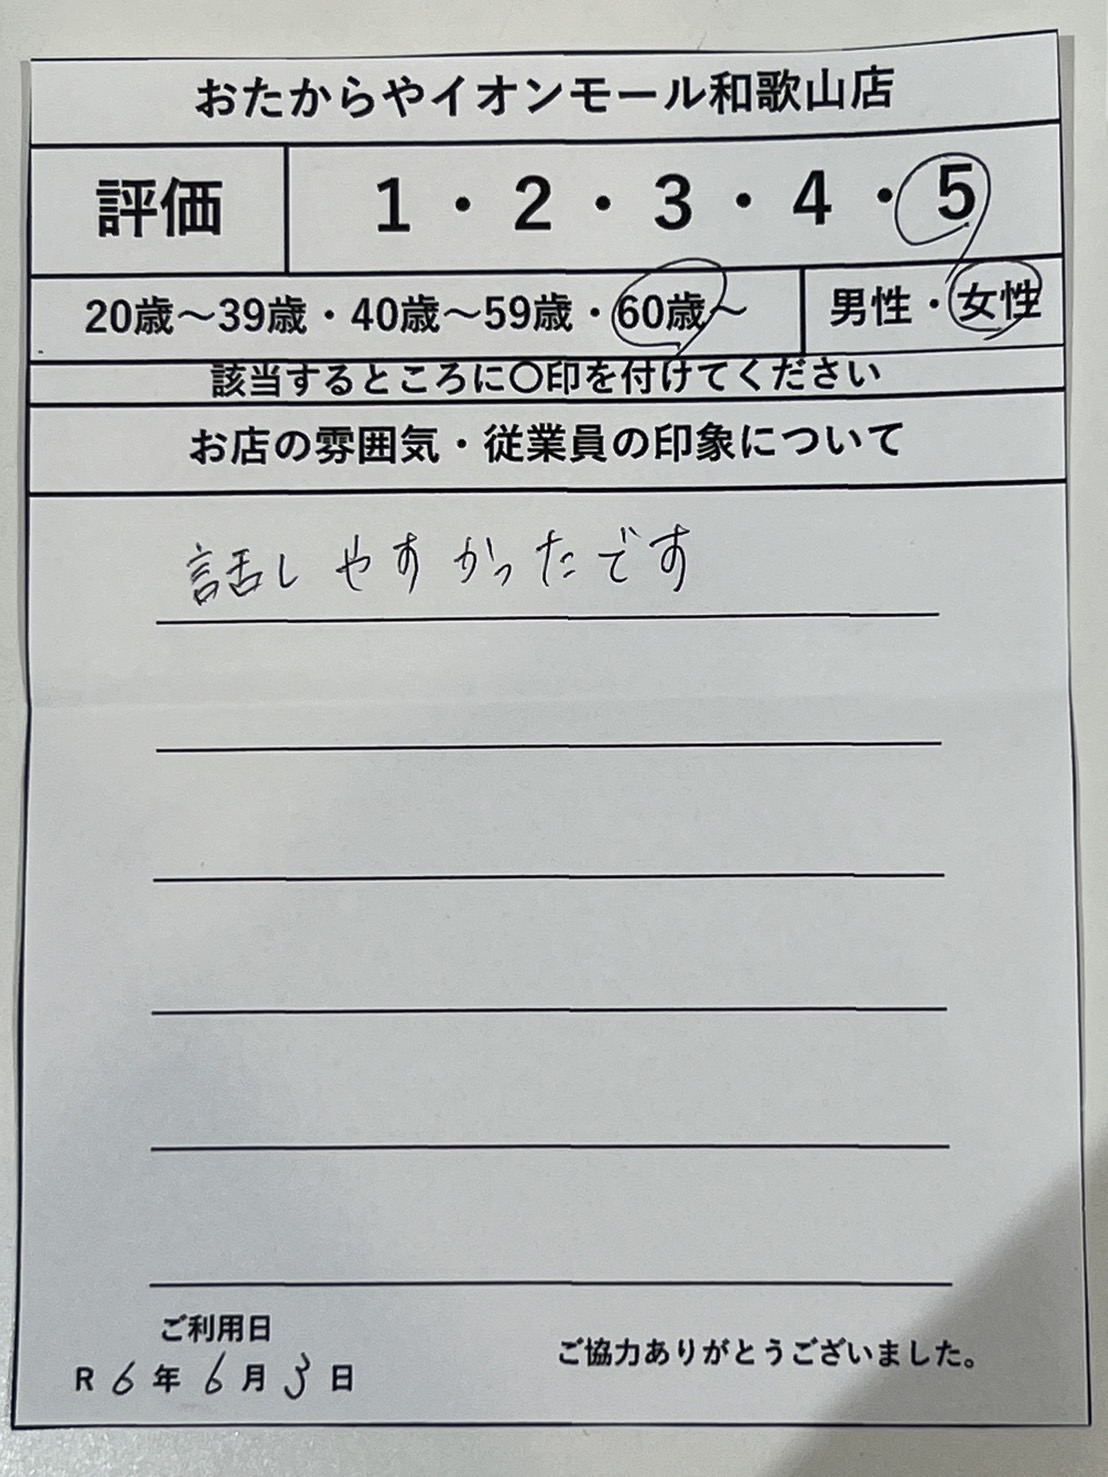 おたからやイオンモール和歌山店
評価 1・2・3・4・5
20歳〜39歳・40歳〜59歳・60歳〜 男性・女性
該当するところに〇印を付けてください
お店の雰囲気・従業員の印象について
話しやすかったです
ご利用日
R6年6月3日
ご協力ありがとうございました。